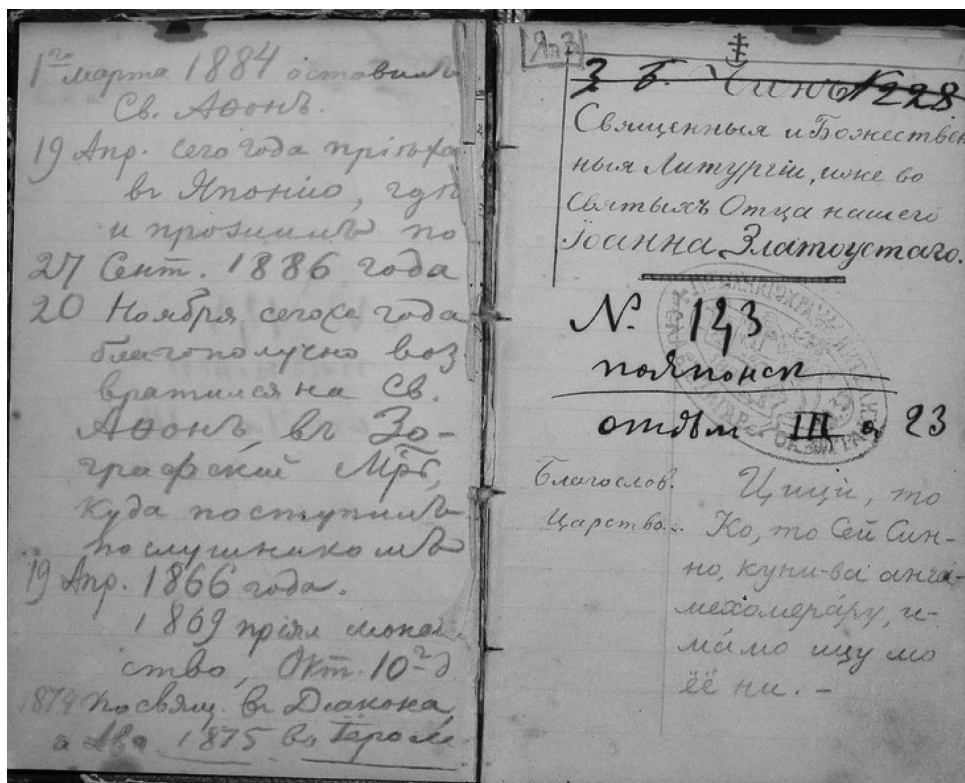 1го марта 1884 оставилъ
Св. Аѳонъ.
19 Апр. сего года пріѣха
въ Японію, гдѣ
и прожилъ по
27 Сент. 1886 года
20 Ноября сегоже года
благополучно воз
вратился на Св.
Аѳонъ, въ Зо-
графский Мрь,
Куда поступилъ
послушникомъ
19 Апр. 1866 года.
1869 пріял мона
ство, Окт. 10го
1874 посвящ. въ Діакона,
а 1875 въ Іером
Яп 3
З. Б. Чинъ №228
Священныя и Божествен
ныя Литургіи, иже во
Святыхъ Отца нашего
Іоанна Златоустаго.
№. 143
пояпонск
отдѣл III а 23
Благослов.
Царство...
Цици, то
Ко, то Сей Син-
но, куни-ва анга-
мехомера́ру, и-
ма́мо ицу мо
ёё ни. -